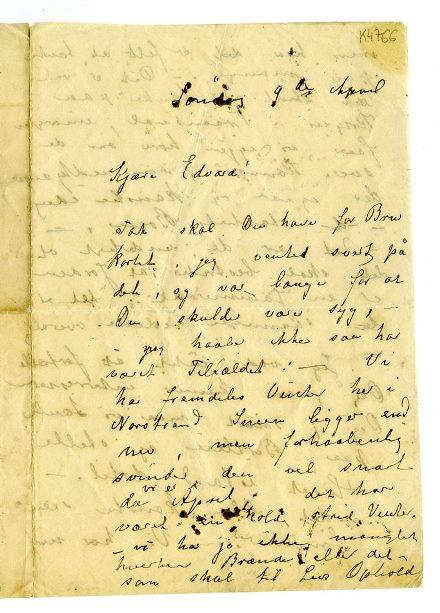 K4766
Søndag 9de April
Kjære Edvard!
Tak skal Du have for Brev
kortet, jeg ventet svært på
det, og var bange for at
Du skulde være syg, –
– jeg haabe ikke saa har
været Tilfældet! – Vi
ha fremdeles Vinter her i
Norstrand Sneen ligger end
nu, men forhaabenlig
svinder den vel snart
da vi er April. det har
været en kold strid Vinter.
– vi ha jo ikke manglet
hverken Brænde eller det
som skal til Livs Ophold